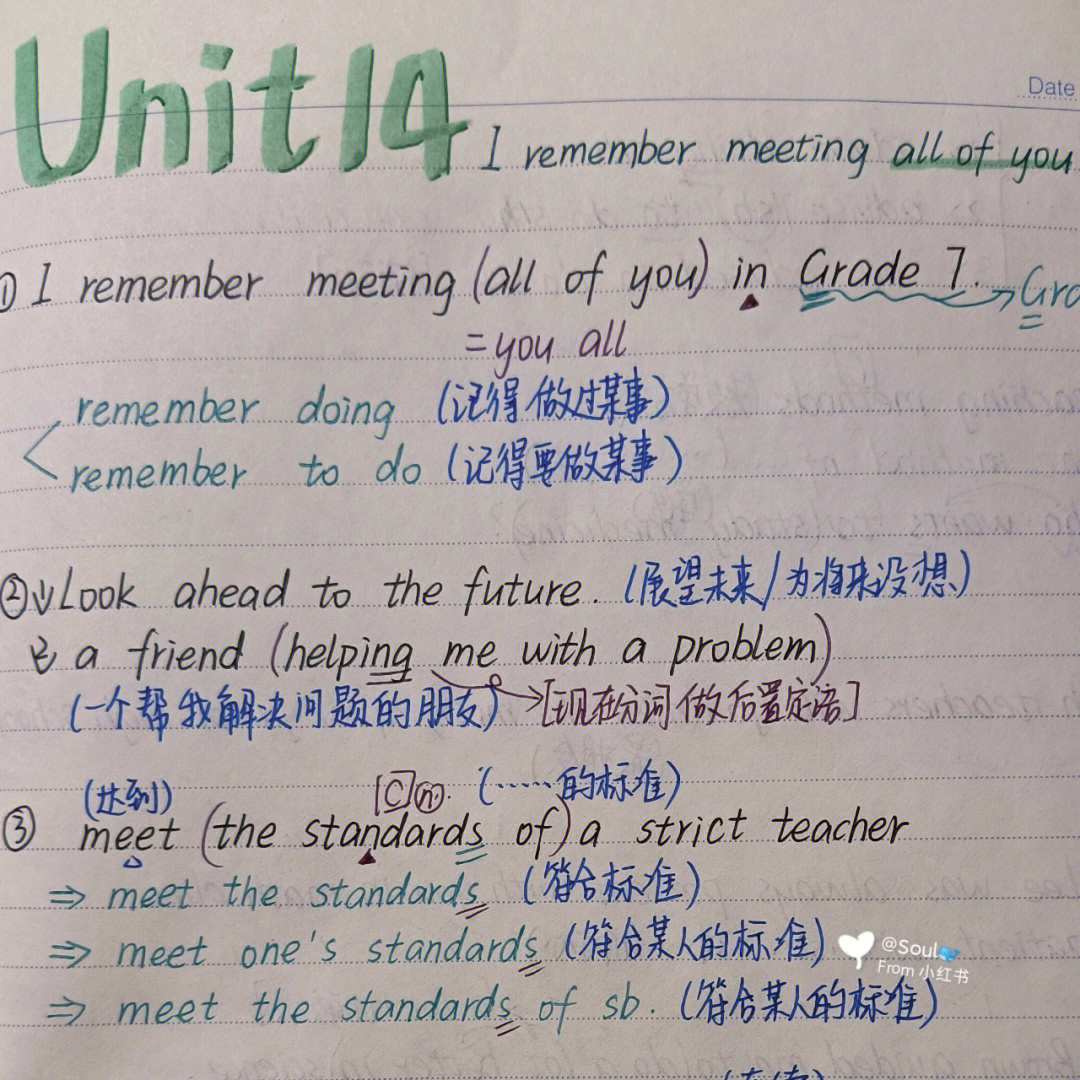 Unit 14
Date
I remember meeting all of you
① I remember meeting (all of you) in Grade 7. → Gra
= you all
remember doing (记得做过某事)
remember to do (记得要做某事)
② Look ahead to the future. (展望未来/为将来设想)
a friend (helping me with a problem)
(一个帮我解决问题的朋友) → [现在分词做后置定语]
(达到) [C] n. (……的标准)
③ meet (the standards of) a strict teacher
⇒ meet the standards (符合标准)
⇒ meet one's standards (符合某人的标准)
⇒ meet the standards of sb. (符合某人的标准)
@Soul
From 小红书